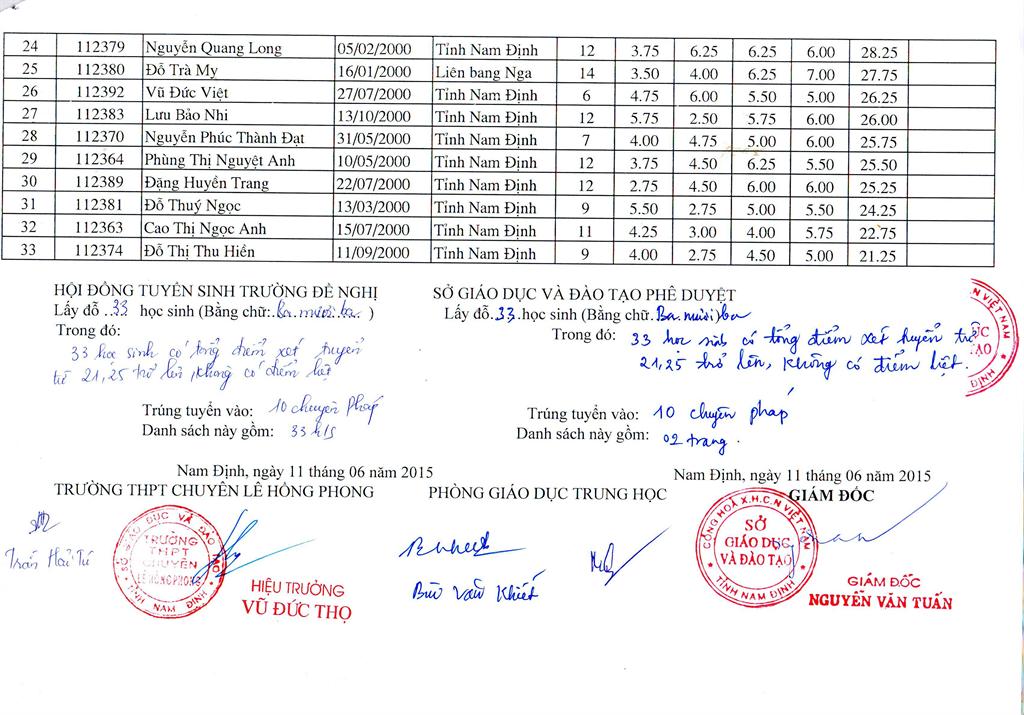 24 112379 Nguyễn Quang Long 05/02/2000 Tỉnh Nam Định 12 3.75 6.25 6.25 6.00 28.25
25 112380 Đỗ Trà My 16/01/2000 Liên bang Nga 14 3.50 4.00 6.25 7.00 27.75
26 112392 Vũ Đức Việt 27/07/2000 Tỉnh Nam Định 6 4.75 6.00 5.50 5.00 26.25
27 112383 Lưu Bảo Nhi 13/10/2000 Tỉnh Nam Định 12 5.75 2.50 5.75 6.00 26.00
28 112370 Nguyễn Phúc Thành Đạt 31/05/2000 Tỉnh Nam Định 7 4.00 4.75 5.00 6.00 25.75
29 112364 Phùng Thị Nguyệt Anh 10/05/2000 Tỉnh Nam Định 12 3.75 4.50 6.25 5.50 25.50
30 112389 Đặng Huyền Trang 22/07/2000 Tỉnh Nam Định 12 2.75 4.50 6.00 6.00 25.25
31 112381 Đỗ Thuý Ngọc 13/03/2000 Tỉnh Nam Định 9 5.50 2.75 5.00 5.50 24.25
32 112363 Cao Thị Ngọc Anh 15/07/2000 Tỉnh Nam Định 11 4.25 3.00 4.00 5.75 22.75
33 112374 Đỗ Thị Thu Hiền 11/09/2000 Tỉnh Nam Định 9 4.00 2.75 4.50 5.00 21.25
HỘI ĐỒNG TUYỂN SINH TRƯỜNG ĐỀ NGHỊ
Lấy đỗ ..33 học sinh (Bằng chữ:..Ba.mươi.ba.. )
Trong đó:
33 học sinh có tổng điểm xét tuyển
từ 21,25 trở lên, không có điểm liệt
Trúng tuyển vào: 10 chuyên Pháp
Danh sách này gồm: 33 h/s
SỞ GIÁO DỤC VÀ ĐÀO TẠO PHÊ DUYỆT
Lấy đỗ.33.học sinh (Bằng chữ.Ba.mươi)ba
Trong đó: 33 học sinh có tổng điểm xét tuyển từ
21,25 trở lên, không có điểm liệt.
Trúng tuyển vào: 10 chuyên pháp
Danh sách này gồm: 02 trang.
Nam Định, ngày 11 tháng 06 năm 2015
TRƯỜNG THPT CHUYÊN LÊ HỒNG PHONG
PHÒNG GIÁO DỤC TRUNG HỌC
Nam Định, ngày 11 tháng 06 năm 2015
GIÁM ĐỐC
SỞ GIÁO DỤC VÀ ĐÀO TẠO
TRƯỜNG
THPT
CHUYÊN
LÊ HỒNG PHONG
TỈNH NAM ĐỊNH
HIỆU TRƯỞNG
VŨ ĐỨC THỌ
Trần Hải Tú
Bùi Văn Khiết
CỘNG HOÀ X.H.C.N VIỆT NAM
SỞ
GIÁO DỤC
VÀ ĐÀO TẠO
TỈNH NAM ĐỊNH
GIÁM ĐỐC
NGUYỄN VĂN TUẤN